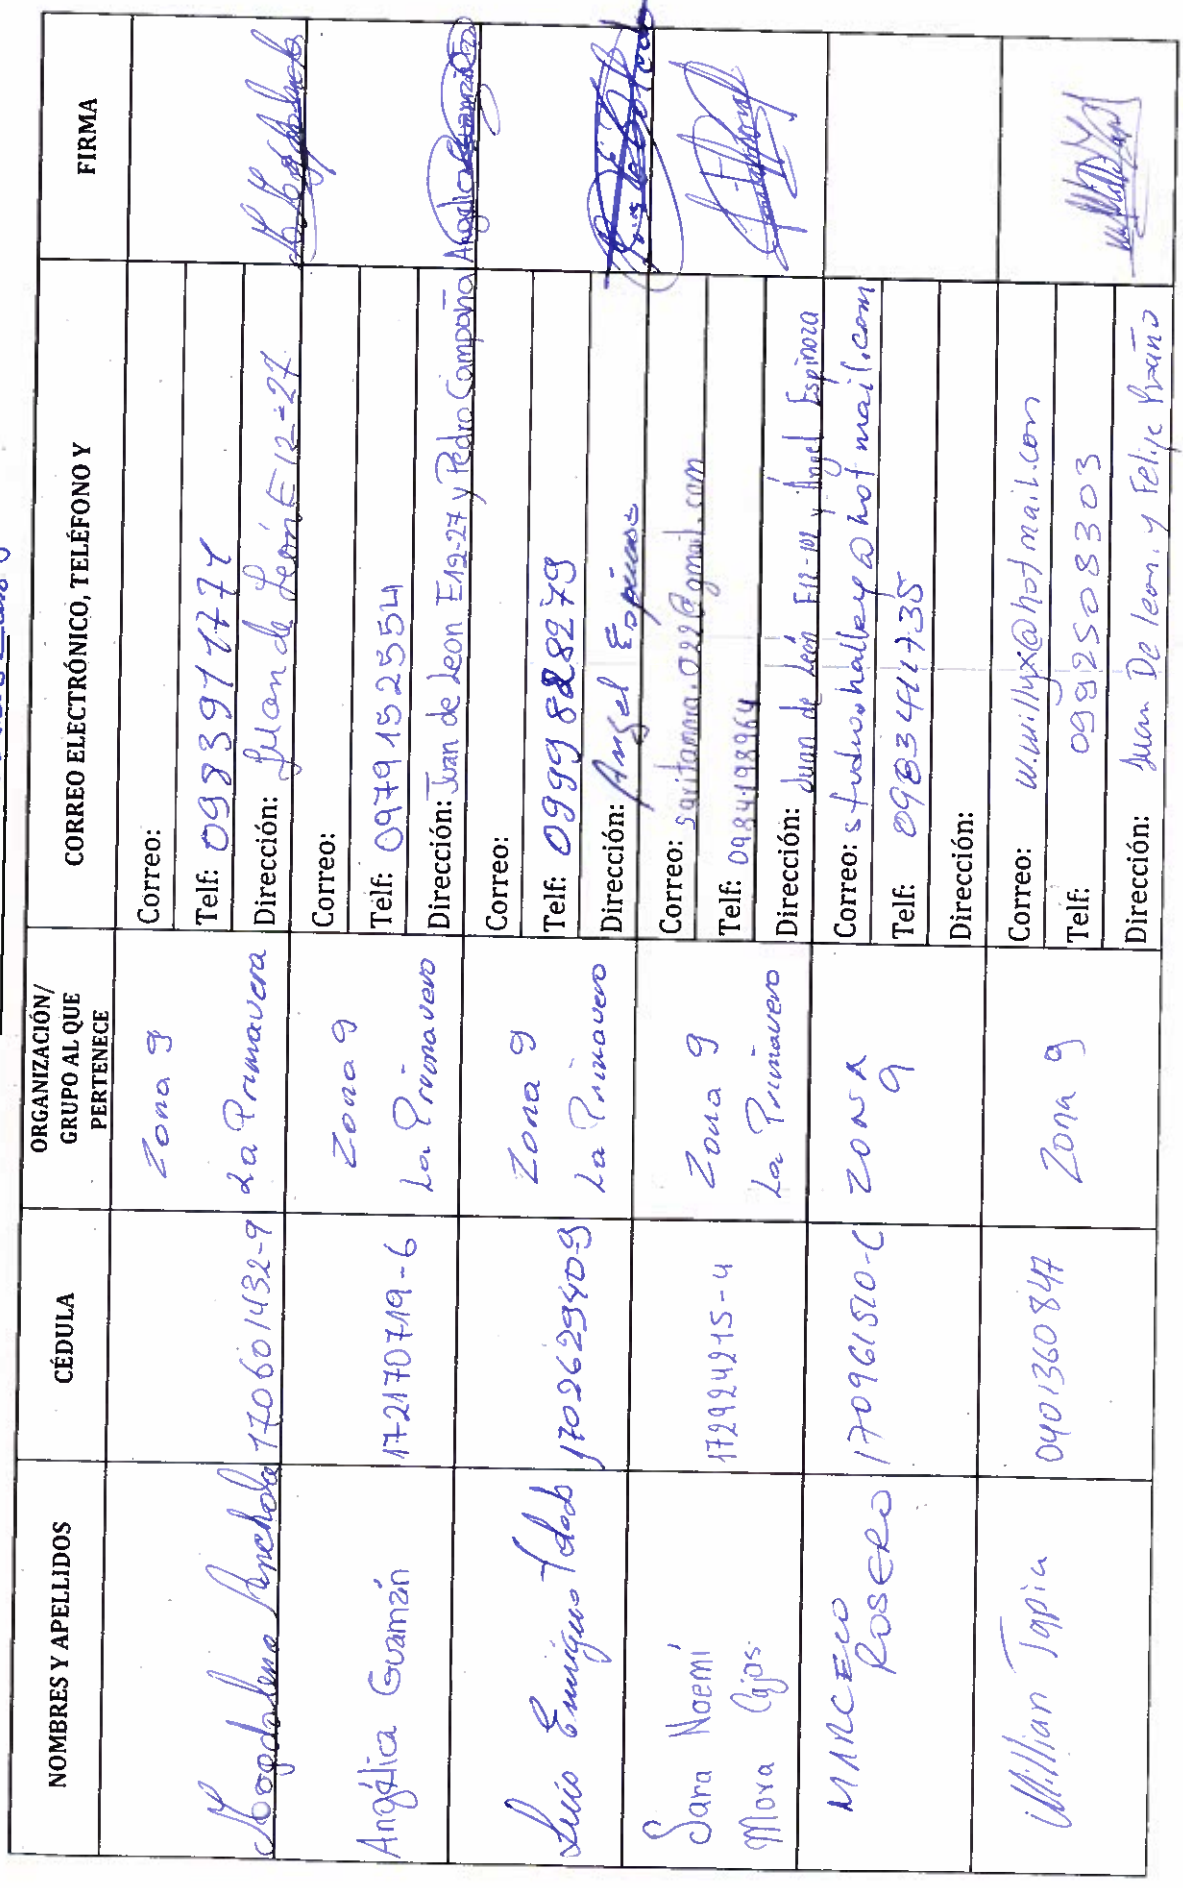 NOMBRES Y APELLIDOS CÉDULA ORGANIZACIÓN/ GRUPO AL QUE PERTENECE CORREO ELECTRÓNICO, TELÉFONO Y FIRMA
Magdalena 170601432-9 Zona 9 La Primavera
Correo:
Telf:
Dirección: Juan de León E12-27
Angélica Guamán 172170719-6 Zona 9 La Primavera
Correo:
Telf: 0979152554
Dirección: Juan de Leon E12-27 y Pedro Campaña
Luis Enrique 170262940-9 Zona 9 La Primavera
Correo:
Telf: 0999828279
Dirección: Angel Espinosa
Sara Noemí Mora Cajas 172924215-4 Zona 9 La Primavera
Correo: saritamora.022@gmail.com
Telf: 0984198964
Dirección: Juan de León E12-102 y Ángel Espinoza
MARCELO ROSERO ZONA 9
Correo:
Telf:
Dirección:
Willian Tapia 0401360847 Zona 9
Correo: w.willyx@hotmail.com
Telf: 0992508303
Dirección: Juan De leon y Felipe